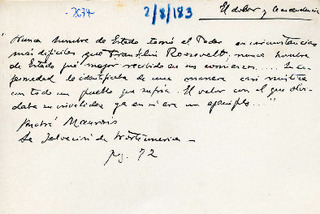 -2674
2/8/183
El dolor y la
"Nunca hombre de Estado tomó el Poder en circunstancias
más difíciles que Franklin Roosevelt, nunca hombre
de Estado fué mejor recibido en sus comienzos..... Su en-
fermedad le identificaba de una manera casi mística
con todo un pueblo que sufría. El valor con el que olvi-
daba su invalidez ya en sí era un ejemplo..."
André Maurois
La Salvación de Norteamérica -
pg. 72